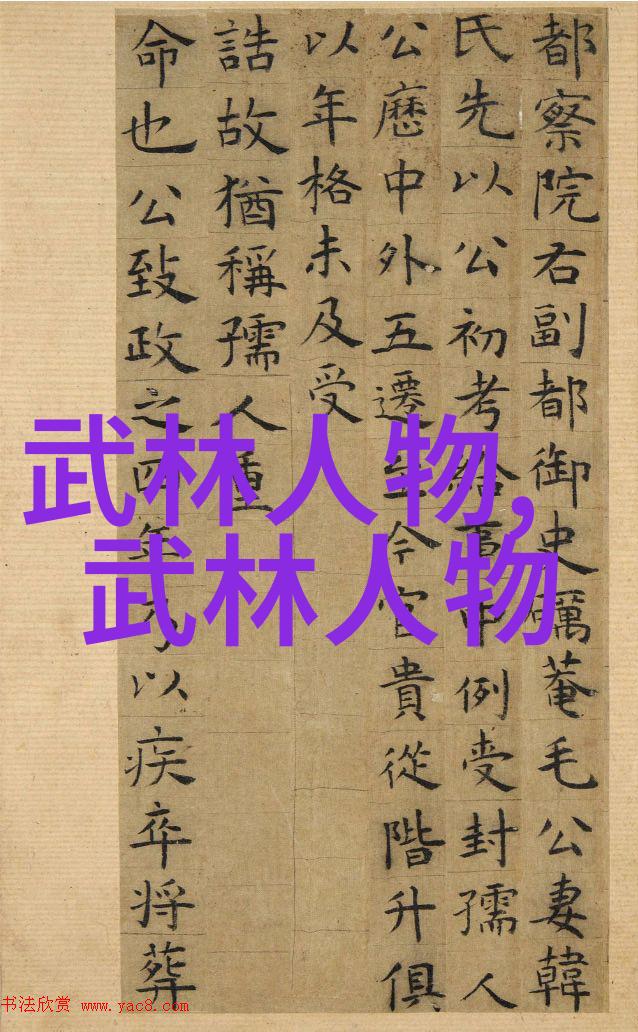 都察院右副都御史礪菴毛公妻韓
氏先以公初考給事中例受封孺人
公歷中外五遷至今官貴從階升俱
以年格未及受
誥故猶稱孺人重
命也公致政之四年乃以疾卒将葬
武林人物,
武林人物
书法欣赏 www.yac8.com